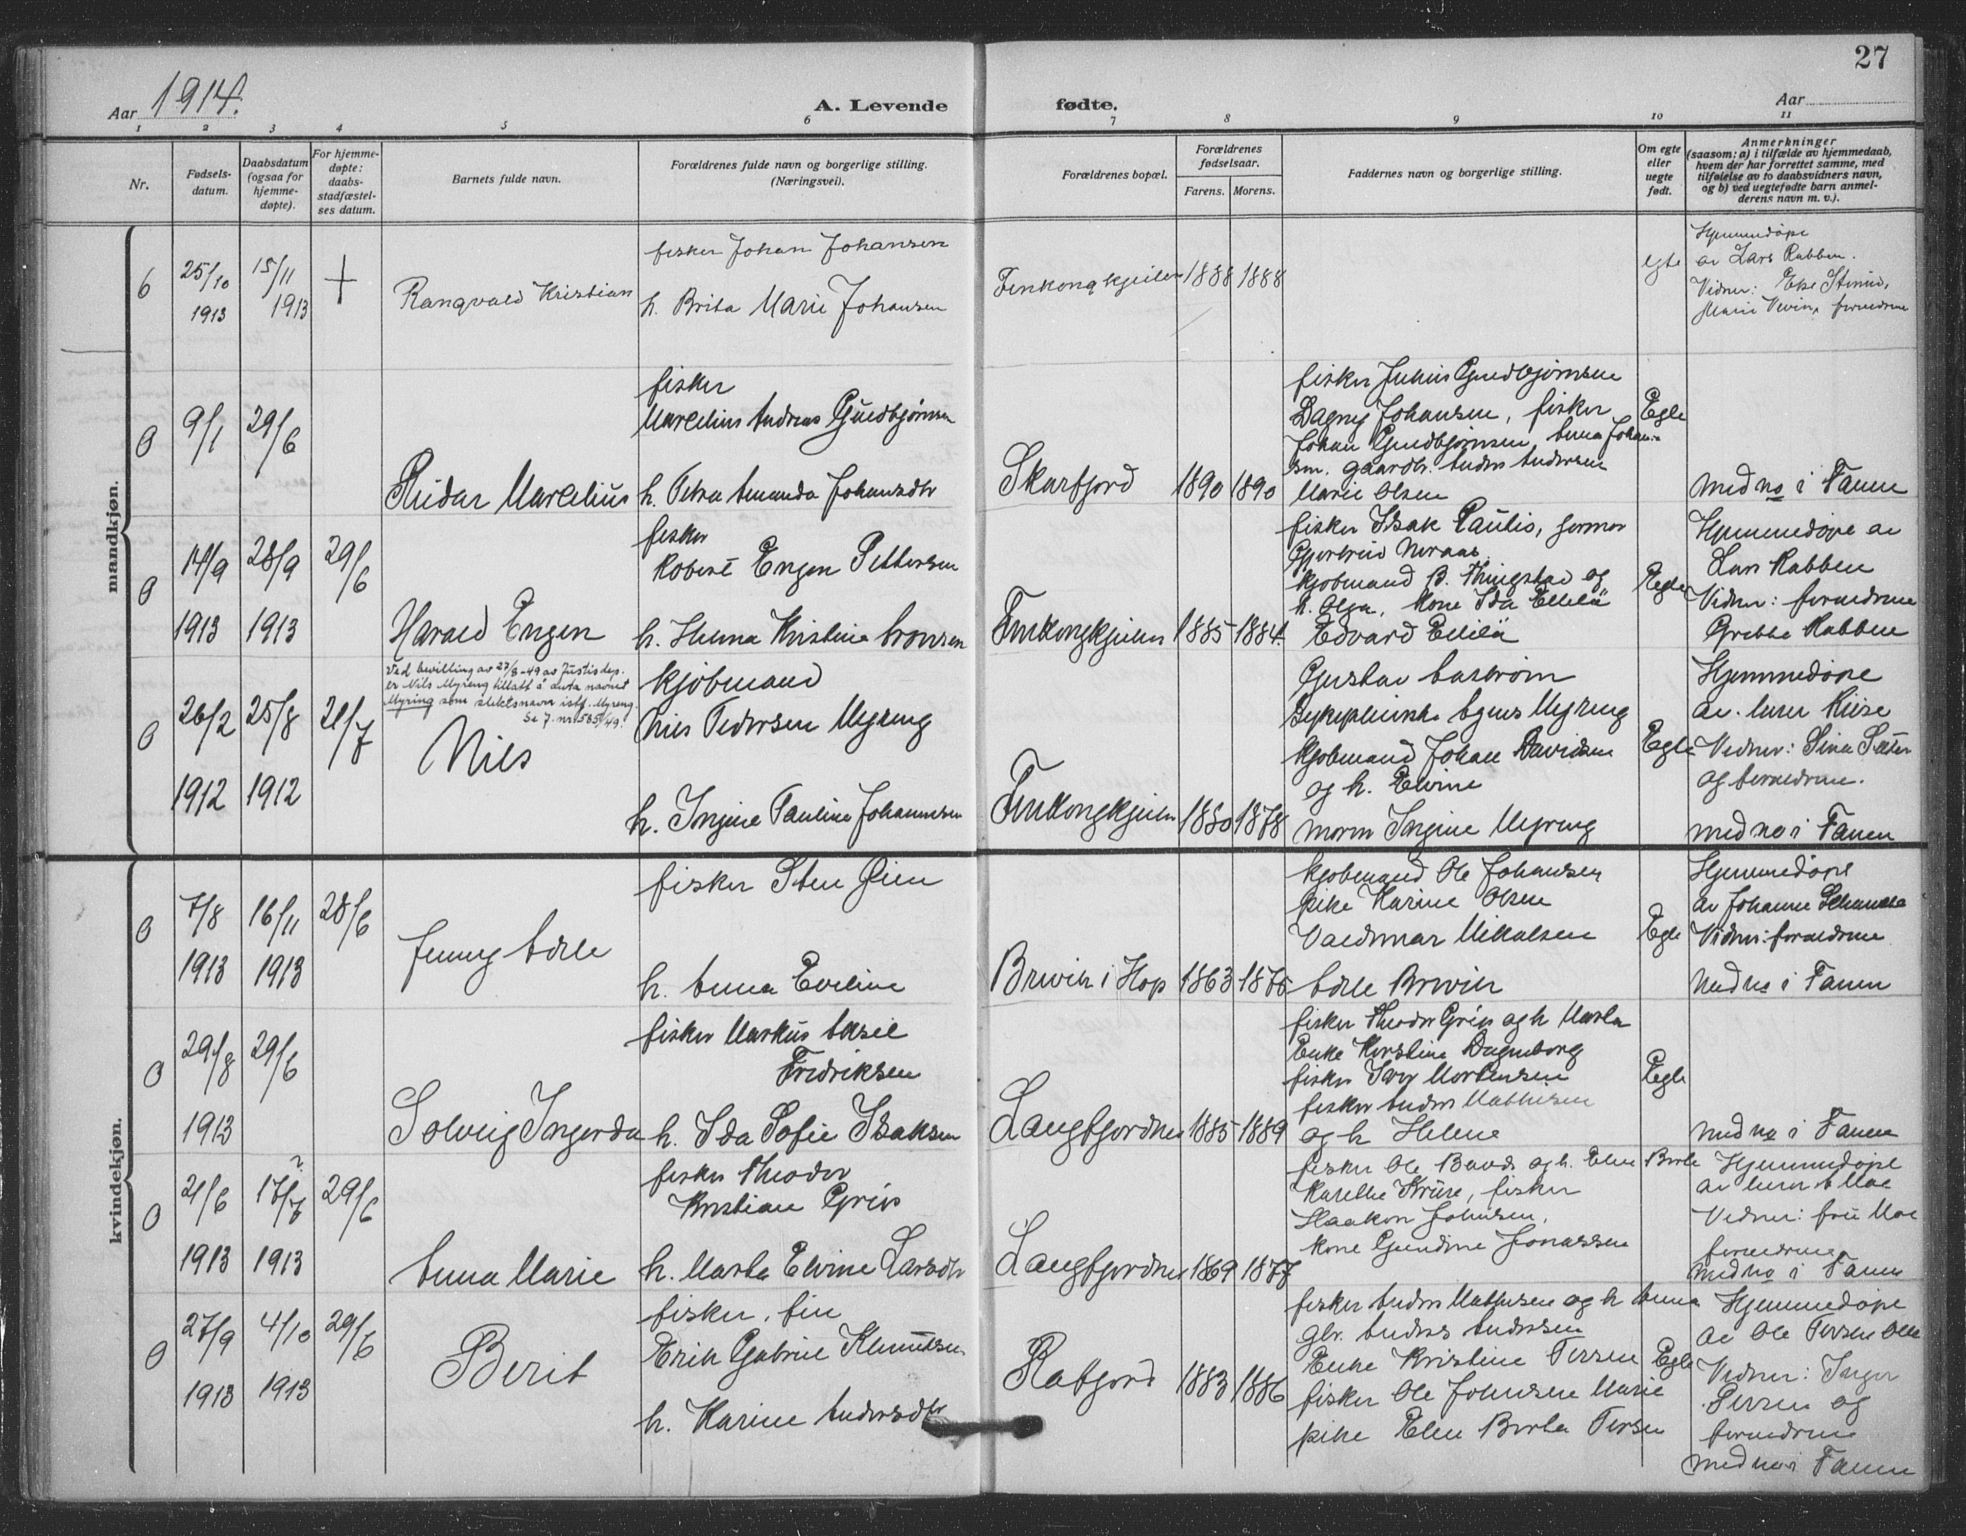 27
Aar 1914.
A. Levende fødte.
Aar
1 2 3 4 5 6 7 8 9 10 11
Nr.
Fødsels-
datum.
Daabsdatum
(ogsaa for
hjemme-
døpte).
For hjemme-
døpte:
daabs-
stadfæstel-
ses datum.
Barnets fulde navn.
Forældrenes fulde navn og borgerlige stilling.
(Næringsvei).
Forældrenes bopæl.
Forældrenes
fødselsaar.
Farens. Morens.
Faddernes navn og borgerlige stilling.
Om egte
eller
uegte
født.
Anmerkninger
(saasom: a) i tilfælde av hjemmedaab,
hvem der har forrettet samme, med
tilføielse av to daabsvidners navn,
og b) ved uegtefødte barn anmel-
derens navn m. v.).
mandkjøn.
6
25/10
1913
15/11
1913
+
Rangvald Kristian
fisker Johan Johansen
h. Brita Marie Johansen
Finkongkjeilen
1888 1888
egte
Hjemmedøpt
av Lars Rabben.
0
9/1
29/6
Reidar Marelius
fisker
Marelius Andreas Guldbjørnsen
h. Petra Amanda Johansdtr
Skarfjord
1890 1890
Dagny Johansen, fisker
sen. gaardbr. Anders Andersen
Marie Olsen
Egte
med no i Tanen
0
14/9
1913
28/9
1913
29/6
Harald Engen
fisker
Robert Engen Pettersen
h. Helma Kristine Aronsen
Finkongkjeilen
1885 1884.
fisker Isak Paulis, jormor
kjøbmand B. Kringstad og
h. Olga, kone Ida Ellilä
Edvard Ellilä
Egte
Hjemmedøpt av
Lars Rabben
Vidner: forældrene
Grethe Rabben
0
26/2
1912
25/8
1912
21/7
Ved bevilling av 27/8-49 av Justisdep.
er Nils Myreng tillatt å anta navnet
Myring som slektsnavn istf. Myreng.
Se J. nr 585/49.
Nils
kjøbmand
Nils Pedersen Myreng
h. Ingine Pauline Johannesen
Finkongkjeilen
1880 1878
Gustav Aastrøm
Agnes Myreng
kjøbmand Johan Davidsen
og h. Elvine
moren Ingine Myreng
Egte
Hjemmedøpt
av lærer Riise
Vidner: Sina Sæter
og forældrene.
med no i Tanen
kvindekjøn.
0
7/8
1913
16/11
1913
28/6
Jenny Adele
fisker Sten Øien
h. Anna Eveline
Brevik i Hop
1863 1875
kjøbmand Ole Johansen
pike Karine Olsen
Valdemar Mikalsen
Adele Brevik
Egte
Hjemmedøpt
Vidner: forældrene
med no i Tanen
0
29/8
1913
29/6
Solveig Ingerda
fisker Markus Aksel
Fredriksen
h. Ida Sofie Isaksen
Langfjordnes
1885 1889
fisker Theodor Griis og h Marta
Enke Kirstine Dagenborg
fisker Iver Mortensen
fisker Anders Mathisen
og h Helene
Egte
med no i Tanen
0
21/6
1913
17/7
?
1913
29/6
Anna Marie
fisker Theodor
Kristian Griis
h. Marta Elvine Larsdtr
Langfjordnes
1869 1877
fisker Ole Bauds og h. Elen Birte
Haakon Johnsen,
kone Gundine Jonassen
Hjemmedøpt
av lærer Moe
Vidner: fru Moe
forældrene
med no i Tanen
0
27/9
1913
4/10
1913
29/6
Berit
fisker, fin
Erik Gabriel Klemetsen
h. Karine Andersdtr
Ratfjord
1883 1886
fisker Anders Mathisen og h Anna
gbr. Anders Andersen
Enke Kristine Persen
fisker Ole Johnsen Marie
pike Elen Birta Persen
Egte
Hjemmedøpt
av Ole Persen
Vidner: Inger
Persen og
forældrene
med no i Tanen